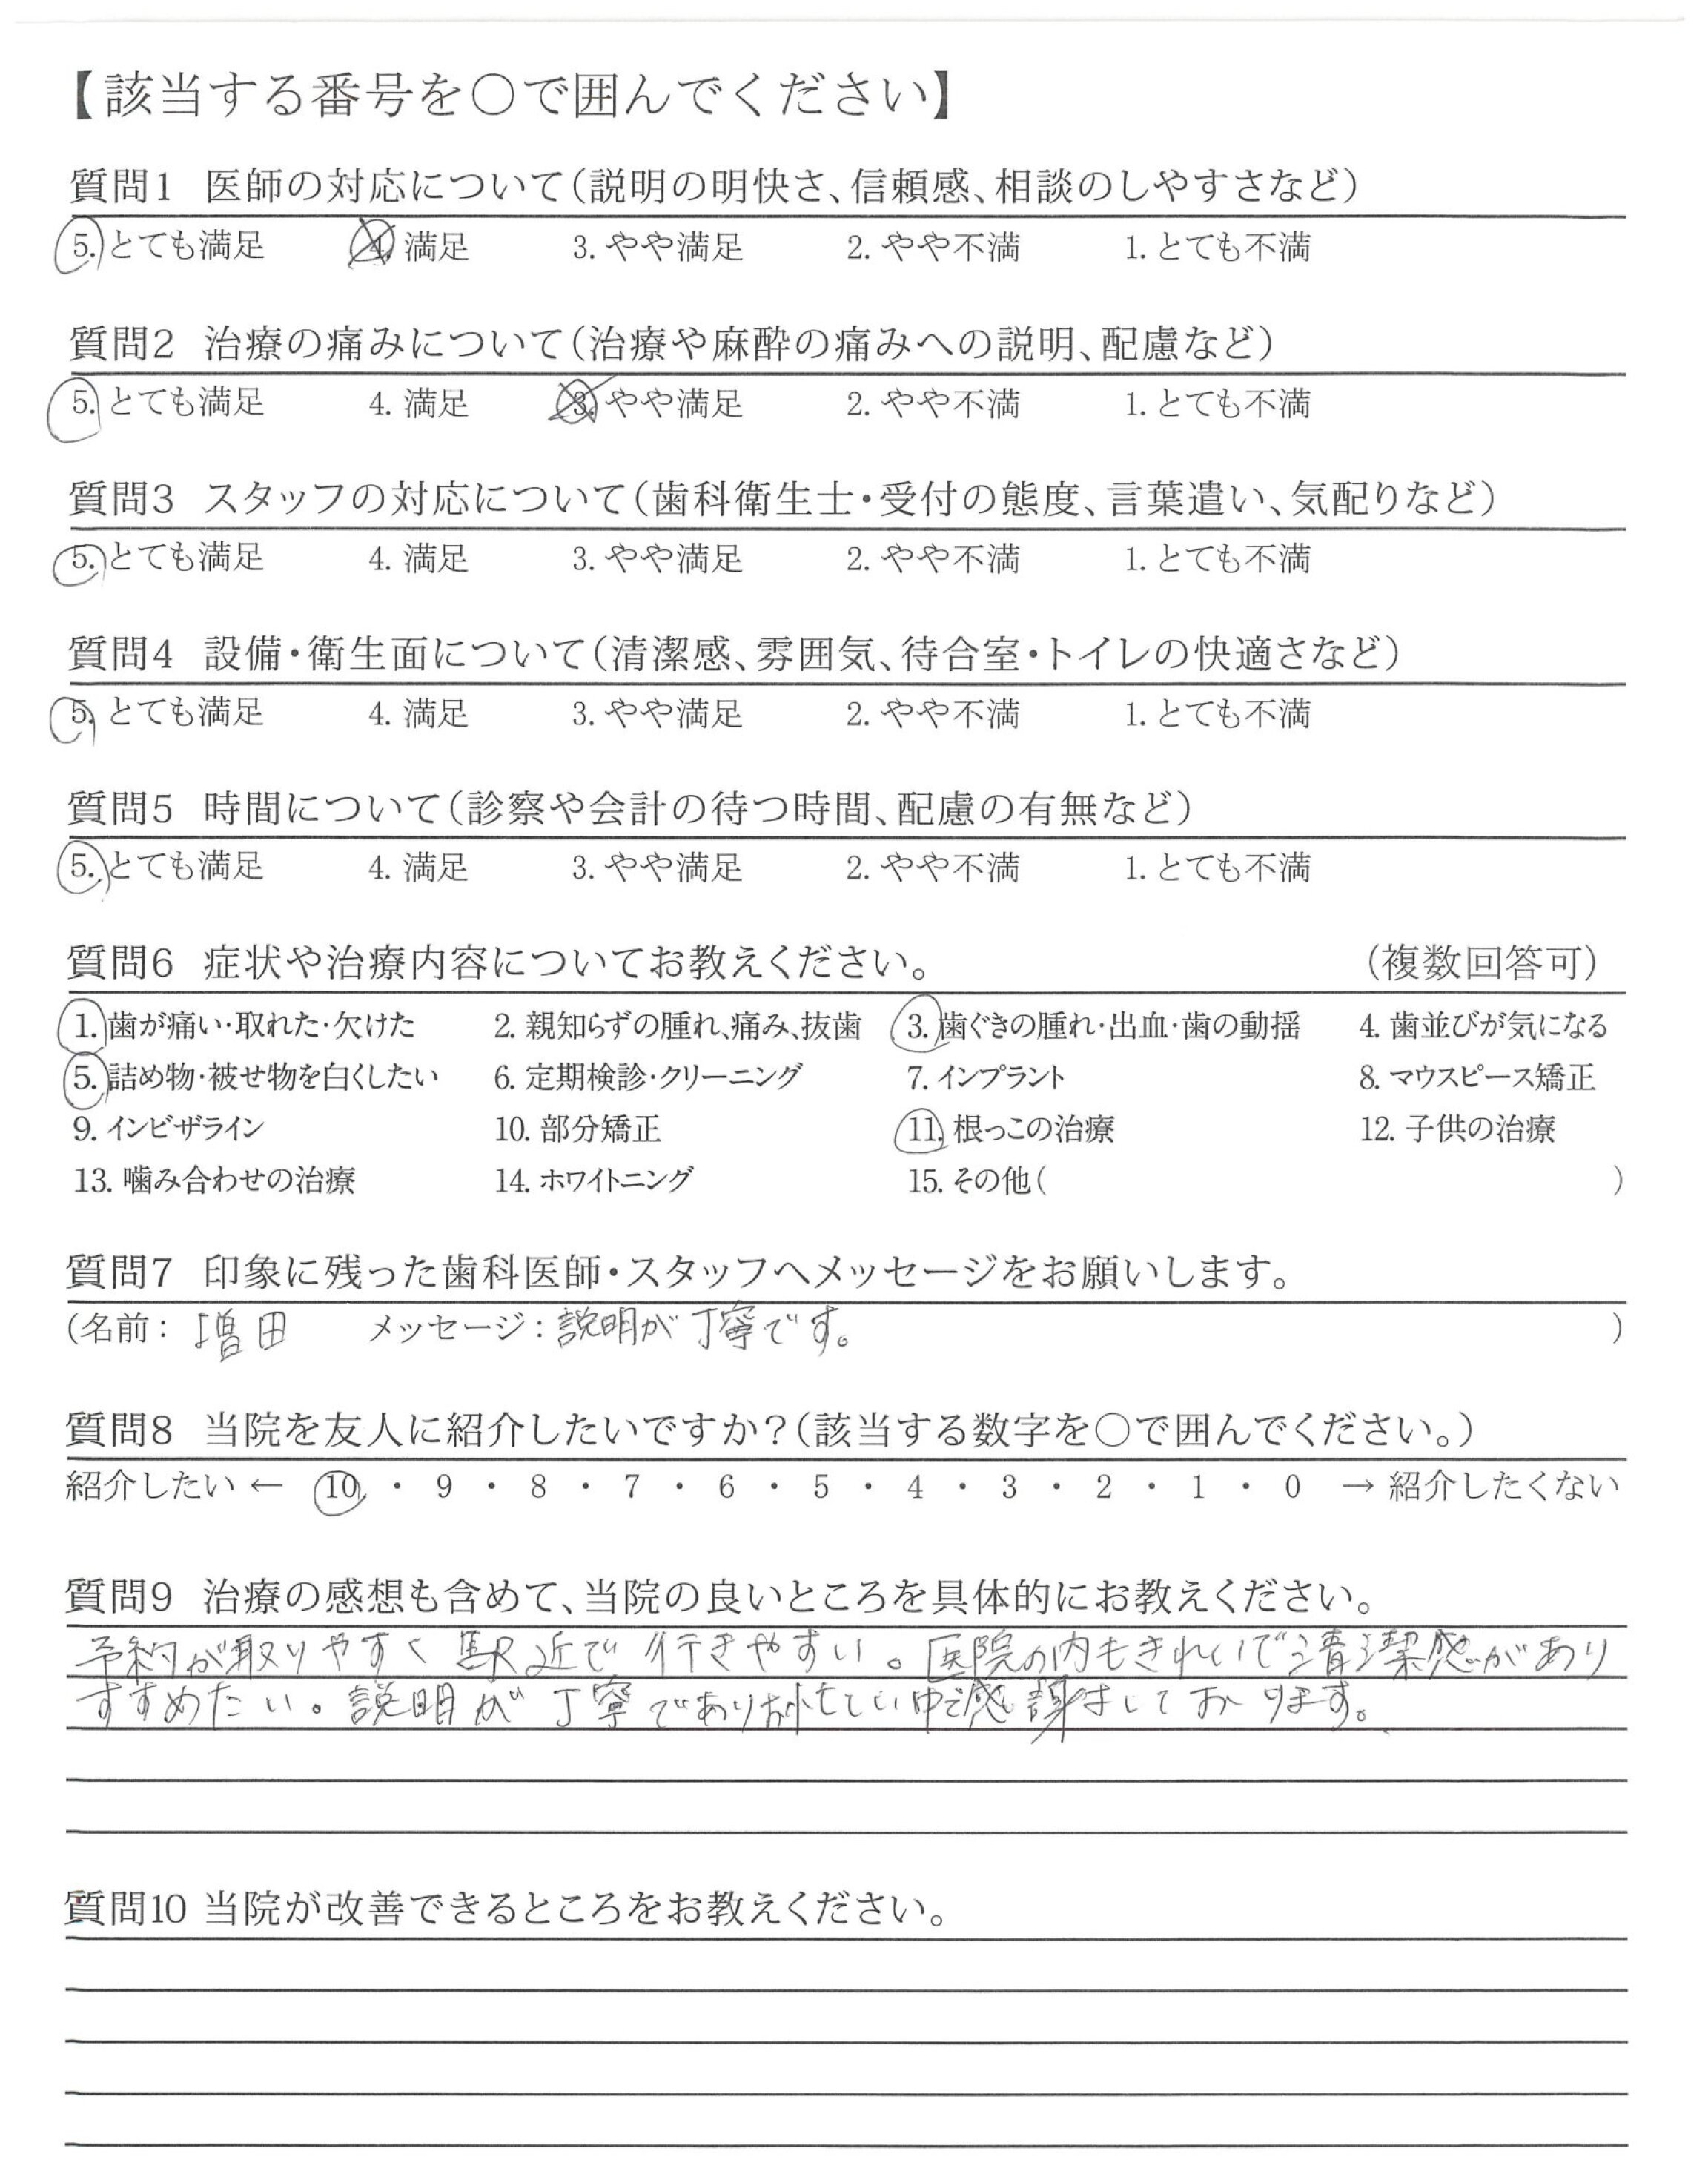 【該当する番号を○で囲んでください】
質問1 医師の対応について(説明の明快さ、信頼感、相談のしやすさなど)
5. とても満足 4. 満足 3. やや満足 2. やや不満 1. とても不満
質問2 治療の痛みについて(治療や麻酔の痛みへの説明、配慮など)
5. とても満足 4. 満足 3. やや満足 2. やや不満 1. とても不満
質問3 スタッフの対応について(歯科衛生士・受付の態度、言葉遣い、気配りなど)
5. とても満足 4. 満足 3. やや満足 2. やや不満 1. とても不満
質問4 設備・衛生面について(清潔感、雰囲気、待合室・トイレの快適さなど)
5. とても満足 4. 満足 3. やや満足 2. やや不満 1. とても不満
質問5 時間について(診察や会計の待つ時間、配慮の有無など)
5. とても満足 4. 満足 3. やや満足 2. やや不満 1. とても不満
質問6 症状や治療内容についてお教えください。 (複数回答可)
1. 歯が痛い・取れた・欠けた 2. 親知らずの腫れ、痛み、抜歯 3. 歯ぐきの腫れ・出血・歯の動揺 4. 歯並びが気になる
5. 詰め物・被せ物を白くしたい 6. 定期検診・クリーニング 7. インプラント 8. マウスピース矯正
9. インビザライン 10. 部分矯正 11. 根っこの治療 12. 子供の治療
13. 噛み合わせの治療 14. ホワイトニング 15. その他( )
質問7 印象に残った歯科医師・スタッフへメッセージをお願いします。
(名前: 増田 メッセージ: 説明が丁寧です。 )
質問8 当院を友人に紹介したいですか?(該当する数字を○で囲んでください。)
紹介したい ← 10 ・ 9 ・ 8 ・ 7 ・ 6 ・ 5 ・ 4 ・ 3 ・ 2 ・ 1 ・ 0 → 紹介したくない
質問9 治療の感想も含めて、当院の良いところを具体的にお教えください。
予約が取りやすく駅近で行きやすい。医院の内もきれいで清潔感があり
すすめたい。説明が丁寧であり お忙しい中 感謝はしております。
質問10 当院が改善できるところをお教えください。